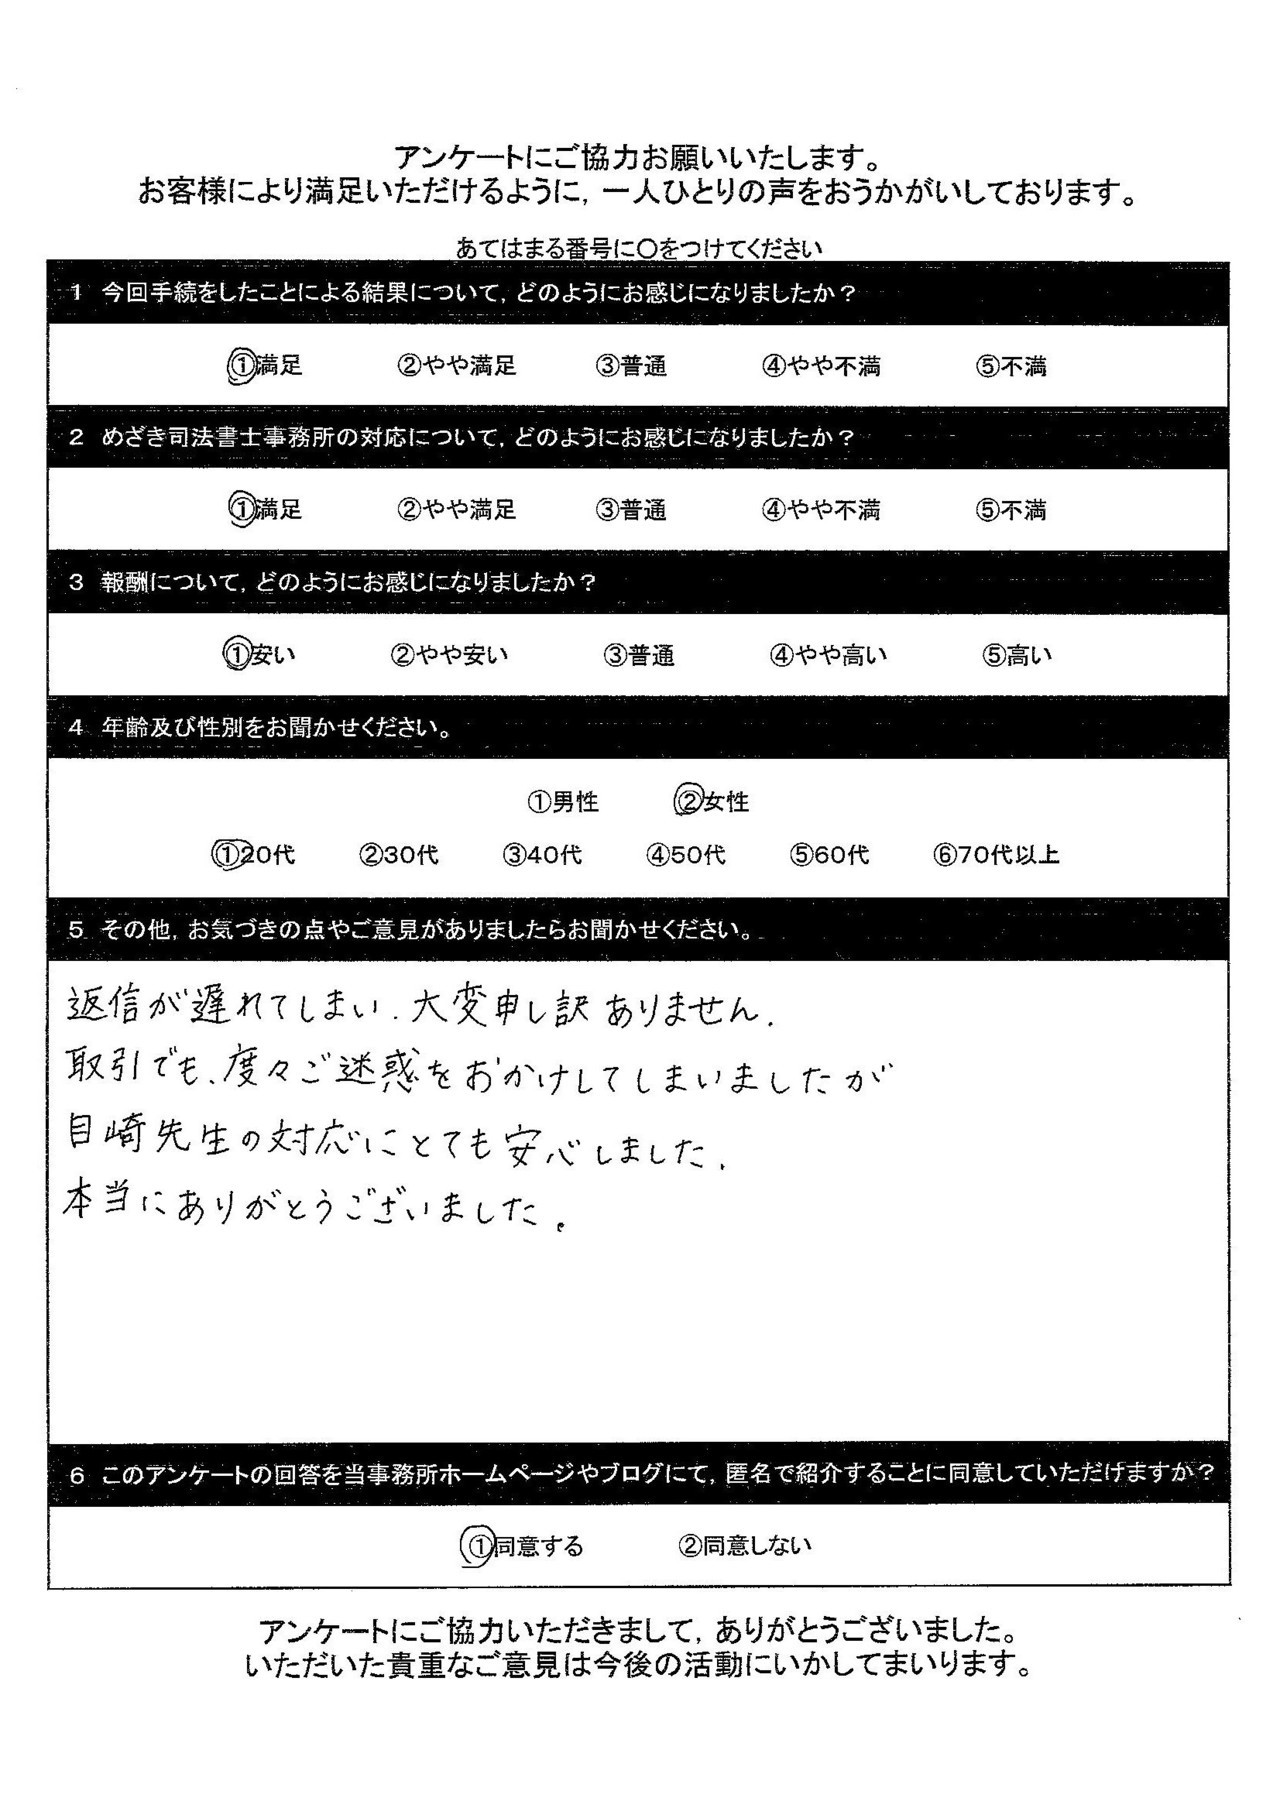 アンケートにご協力お願いいたします。
お客様により満足いただけるように，一人ひとりの声をおうかがいしております。
あてはまる番号に〇をつけてください
1 今回手続をしたことによる結果について，どのようにお感じになりましたか？
①満足 ②やや満足 ③普通 ④やや不満 ⑤不満
2 めざき司法書士事務所の対応について，どのようにお感じになりましたか？
①満足 ②やや満足 ③普通 ④やや不満 ⑤不満
3 報酬について，どのようにお感じになりましたか？
①安い ②やや安い ③普通 ④やや高い ⑤高い
4 年齢及び性別をお聞かせください。
①男性 ②女性
①20代 ②30代 ③40代 ④50代 ⑤60代 ⑥70代以上
5 その他，お気づきの点やご意見がありましたらお聞かせください。
返信が遅れてしまい、大変申し訳ありません。
取引でも、度々ご迷惑をおかけしてしまいましたが
目崎先生の対応にとても安心しました。
本当にありがとうございました。
6 このアンケートの回答を当事務所ホームページやブログにて，匿名で紹介することに同意していただけますか？
①同意する ②同意しない
アンケートにご協力いただきまして，ありがとうございました。
いただいた貴重なご意見は今後の活動にいかしてまいります。